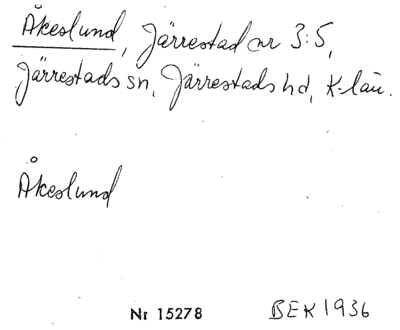 Åkeslund, Järrestad nr 3:5,
Järrestads sn, Järrestads hd, K-län.
Åkeslund
Nr 15278 BEK 1936